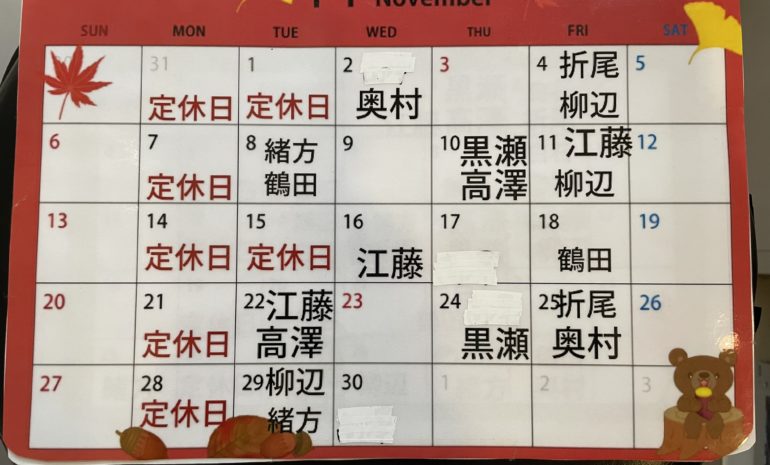 November
SUN MON TUE WED THU FRI SAT
30 31 1 2 3 4 折尾 5
定休日 定休日 奥村 柳辺
6 7 8 緒方 9 10 黒瀬 11 江藤 12
定休日 鶴田 高澤 柳辺
13 14 15 16 17 18 19
定休日 定休日 江藤 鶴田
20 21 22 江藤 23 24 25 折尾 26
定休日 高澤 黒瀬 奥村
27 28 29 柳辺 30 1 2 3
定休日 緒方